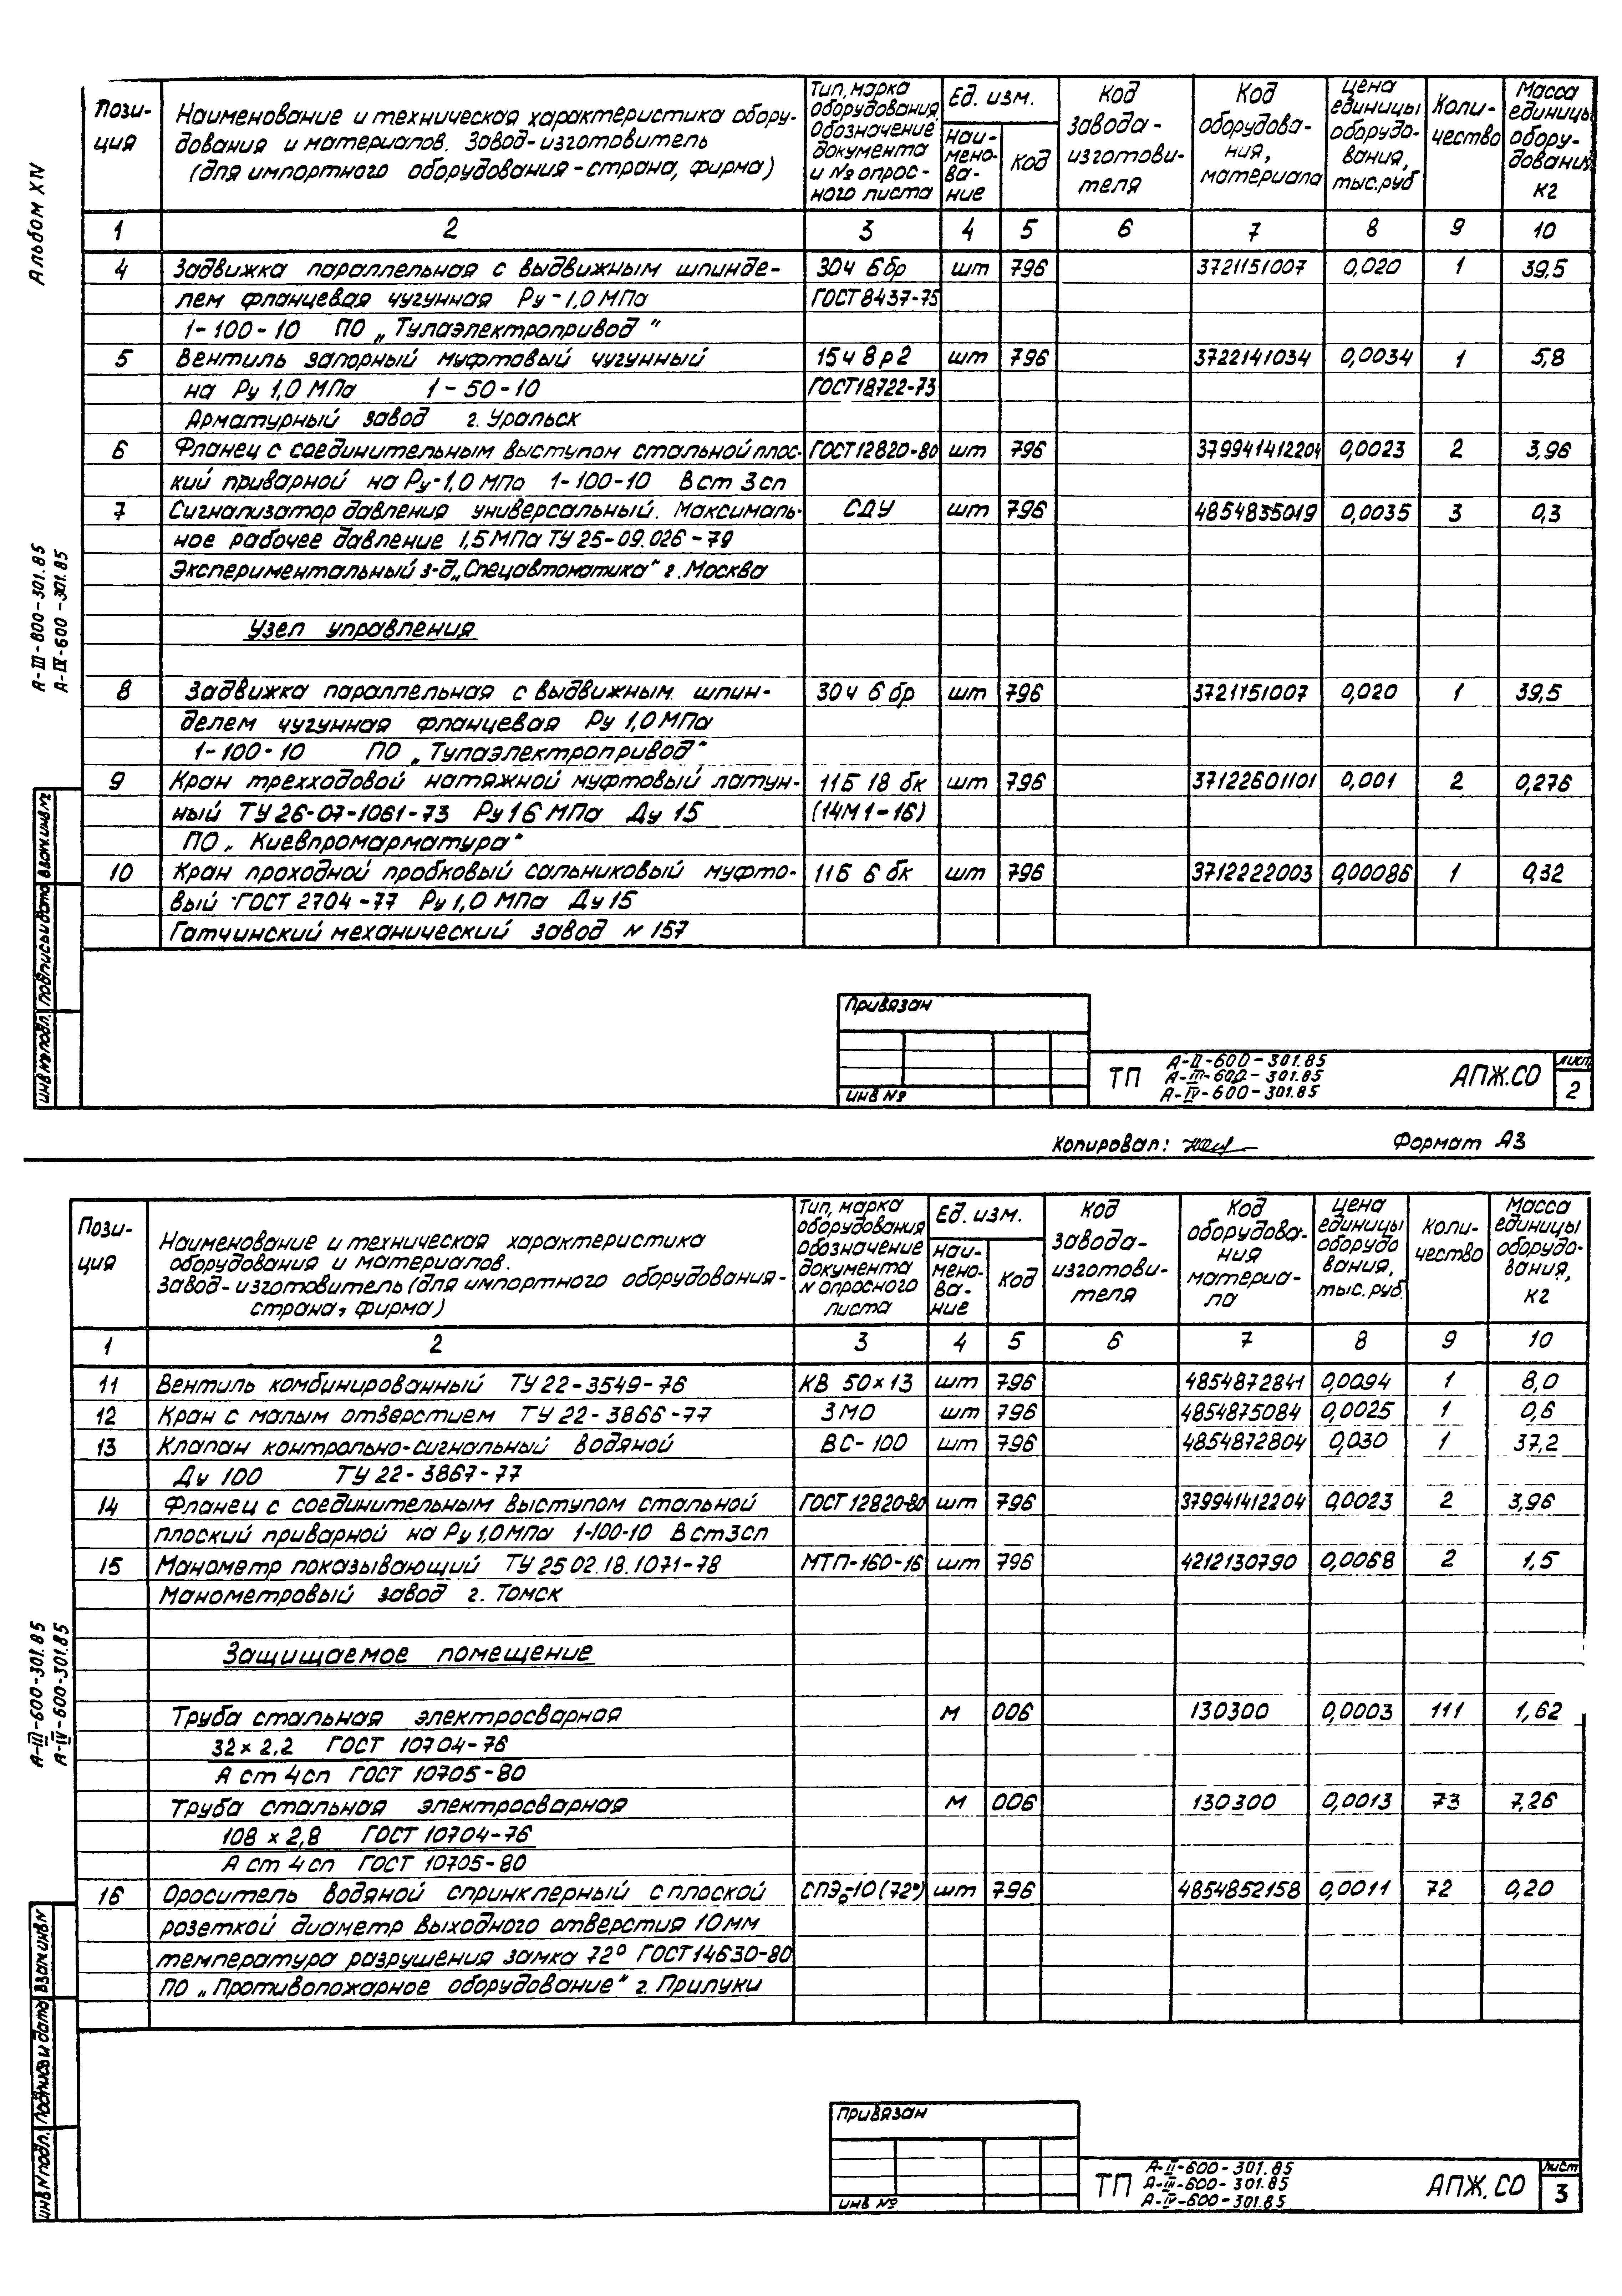 Альбом XIV
А-III-800-301.85
А-IV-600-301.85
Пози-
ция
Наименование и техническая характеристика обору-
дования и материалов. Завод-изготовитель
(для импортного оборудования-страна, фирма)
Тип, марка
оборудования
Обозначение
документа
и № опрос-
ного листа
Ед. изм.
наи-
мено-
ва-
ние
Код
Код
завода-
изготови-
теля
Код
оборудова-
ния,
материала
Цена
единицы
оборудо-
вания,
тыс.руб
Коли-
чество
Масса
единицы
обору-
дования
кг
1 2 3 4 5 6 7 8 9 10
4 Задвижка параллельная с выдвижным шпинде- 30ч 6бр шт 796 3721151007 0,020 1 39,5
лем фланцевая чугунная Ру-1,0 МПа ГОСТ 8437-75
1-100-10 ПО „Тулаэлектропривод"
5 Вентиль запорный муфтовый чугунный 15ч 8р2 шт 796 3722141034 0,0034 1 5,8
на Ру 1,0 МПа 1-50-10 ГОСТ18722-73
Арматурный завод г. Уральск
6 Фланец с соединительным выступом стальной плос- ГОСТ12820-80 шт 796 379941412204 0,0023 2 3,96
кий приварной на Ру-1,0 МПа 1-100-10 Вст 3сп
7 Сигнализатор давления универсальный. Максималь- СДУ шт 796 4854835019 0,0035 3 0,3
ное рабочее давление 1,5 МПа ТУ 25-09.026-79
Экспериментальный з-д „Спецавтоматика" г. Москва
Узел управления
8 Задвижка параллельная с выдвижным шпин- 30ч 6бр шт 796 3721151007 0,020 1 39,5
делем чугунная фланцевая Ру 1,0 МПа
1-100-10 ПО „Тулаэлектропривод"
9 Кран трехходовой натяжной муфтовый латун- 11Б 18 бк шт 796 37122601101 0,001 2 0,276
ный ТУ 26-07-1061-73 Ру 16 МПа Ду 15 (14М1-16)
ПО „Киевпромарматура"
10 Кран проходной пробковый сальниковый муфто- 11Б 6 бк шт 796 3712222003 0,00086 1 0,32
вый ГОСТ 2704-77 Ру 1,0 МПа Ду 15
Гатчинский механический завод N 157
Взам.инв.N
Подпись и дата
Инв.№ подл.
Привязан
Инв №
ТП
А-II-600-301.85
А-III-600-301.85
А-IV-600-301.85
АПЖ.СО
Лист
2
Копировал:
Формат А3
А-III-600-301.85
А-IV-600-301.85
Пози-
ция
Наименование и техническая характеристика
оборудования и материалов.
Завод-изготовитель (для импортного оборудования-
страна, фирма)
Тип, марка
оборудования
Обозначение
документа
N опросного
листа
Ед. изм.
наи-
мено-
ва-
ние
Код
Код
завода-
изготови-
теля
Код
оборудова-
ния
материа-
ла
Цена
единицы
оборудо
вания,
тыс. руб.
Коли-
чество
Масса
единицы
оборудо-
вания,
кг
1 2 3 4 5 6 7 8 9 10
11 Вентиль комбинированный ТУ 22-3549-76 КВ 50×13 шт 796 4854872841 0,0094 1 8,0
12 Кран с малым отверстием ТУ 22-3866-77 ЗМО шт 796 4854875084 0,0025 1 0,6
13 Клапан контрольно-сигнальный водяной ВС-100 шт 796 4854872804 0,030 1 37,2
Ду 100 ТУ 22-3867-77
14 Фланец с соединительным выступом стальной ГОСТ 12820-80 шт 796 379941412204 0,0023 2 3,96
плоский приварной на Ру 1,0 МПа 1-100-10 Вст3сп
15 Манометр показывающий ТУ 25 02.18.1071-78 МТП-160-16 шт 796 4212130790 0,0068 2 1,5
Манометровый завод г. Томск
Защищаемое помещение
Труба стальная электросварная м 006 130300 0,0003 111 1,62
32×2,2 ГОСТ 10704-76
А ст 4сп ГОСТ 10705-80
Труба стальная электросварная м 006 130300 0,0013 73 7,26
108 × 2,8 ГОСТ 10704-76
А ст 4сп ГОСТ 10705-80
16 Ороситель водяной спринклерный с плоской СПЭо-10 (72°) шт 796 4854852158 0,0011 72 0,20
розеткой диаметр выходного отверстия 10 мм
температура разрушения замка 72° ГОСТ 14630-80
ПО „Противопожарное оборудование" г. Прилуки
Взам.инв.N
Подпись и дата
Инв N подл.
Привязан
Инв №
ТП
А-II-600-301.85
А-III-600-301.85
А-IV-600-301.85
АПЖ.СО
Лист
3